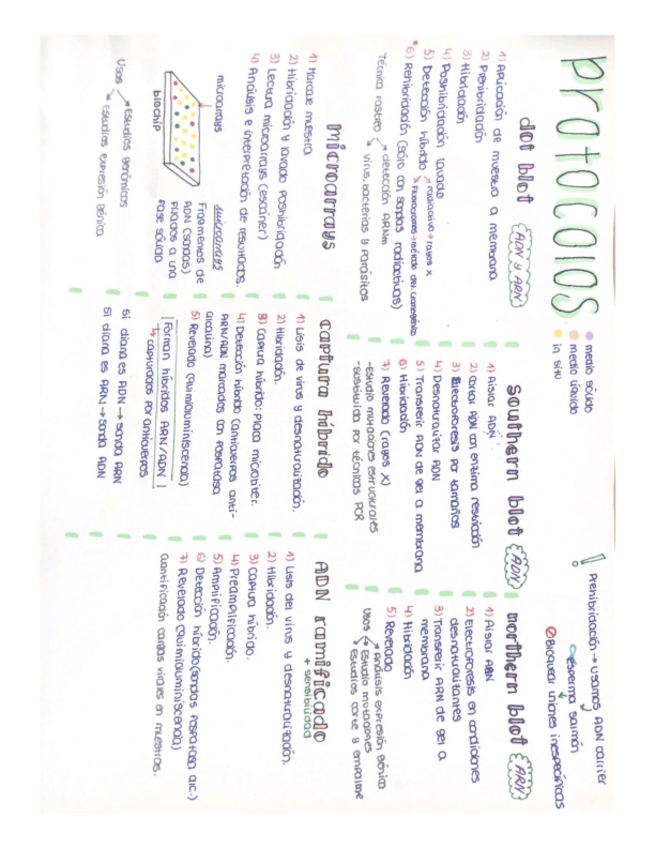 protocolos
medio sólido
medio líquido
in situ
! Prehibridación → usamos ADN carrier
esperma salmón
Bloquear uniones inespecíficas
dot blot (ADN y ARN)
1) Aplicación de muestra a membrana
2) Prehibridación
3) Hibridación
4) Posthibridación lavado
5) Detección híbrido → radioactivo → rayos X
*6) Rehibridación (sólo con sondas radioactivas)
Técnica rastreo → detección ARNm
virus, bacterias y parásitos
southern blot (ADN)
1) Aislar ADN.
2) Cortar ADN con enzima restricción
3) Electroforesis por tamaños
4) Desnaturalizar ADN
5) Transferir ADN de gel a membrana
6) Hibridación
7) Revelado (rayos X)
-Estudio mutaciones estructurales
-Sustituida por técnicas PCR
northern blot (ARN)
1) Aislar ARN
2) Electroforesis en condiciones
desnaturalizantes
3) Transferir ARN de gel a
membrana
4) Hibridación
5) Revelado
Usos → Análisis expresión génica
→ Estudio mutaciones
→ Estudios corte y empalme
microarrays
1) Marcaje muestra
2) Hibridación y lavado posthibridación
3) Lectura microarrays (escáner)
4) Análisis e interpretación de resultados.
microarrays
biochip
microarrays
Fragmentos de
ADN (sondas)
fijados a una
fase sólida
Usos → Estudios genómicos
→ Estudios expresión génica
captura híbrido
1) Lisis de virus y desnaturalización.
2) Hibridación.
3) Captura híbrido: Placa microtiter.
4) Detección híbrido (anticuerpos anti-
ARN/ADN marcados con fosfatasa
alcalina)
5) Revelado (Quimioluminiscencia)
Forman híbridos ARN/ADN
↳ capturados por anticuerpos
Si diana es ADN → sonda ARN
Si diana es ARN → sonda ADN
ADN ramificado
+ sensibilidad
1) Lisis del virus y desnaturalización.
2) Hibridación.
3) Captura híbrido.
4) Preamplificación.
5) Amplificación.
6) Detección híbrido (sondas fosfatasa alc.)
7) Revelado (Quimioluminiscencia)
Cuantificación cargas virales en muestras.